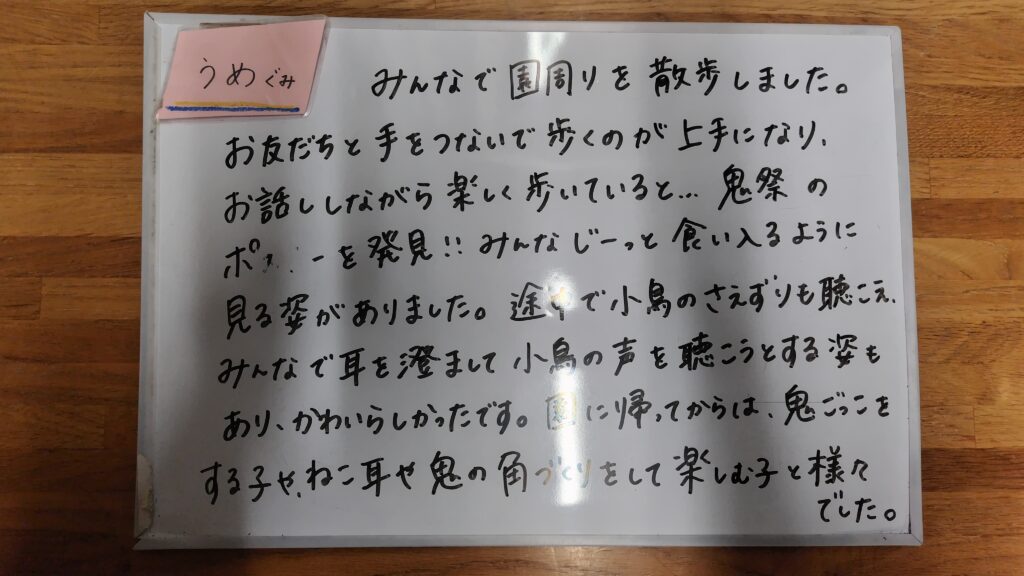 うめぐみ
みんなで園周りを散歩しました。
お友だちと手をつないで歩くのが上手になり、
お話ししながら楽しく歩いていると… 鬼祭の
を発見!! みんなじーっと食い入るように
見る姿がありました。途中で小鳥のさえずりも聴こえ、
みんなで耳を澄まして小鳥の声を聴こうとする姿も
あり、かわいらしかったです。園に帰ってからは、鬼ごっこを
する子や、ねこ耳や鬼の角づくりをして楽しむ子と様々
でした。